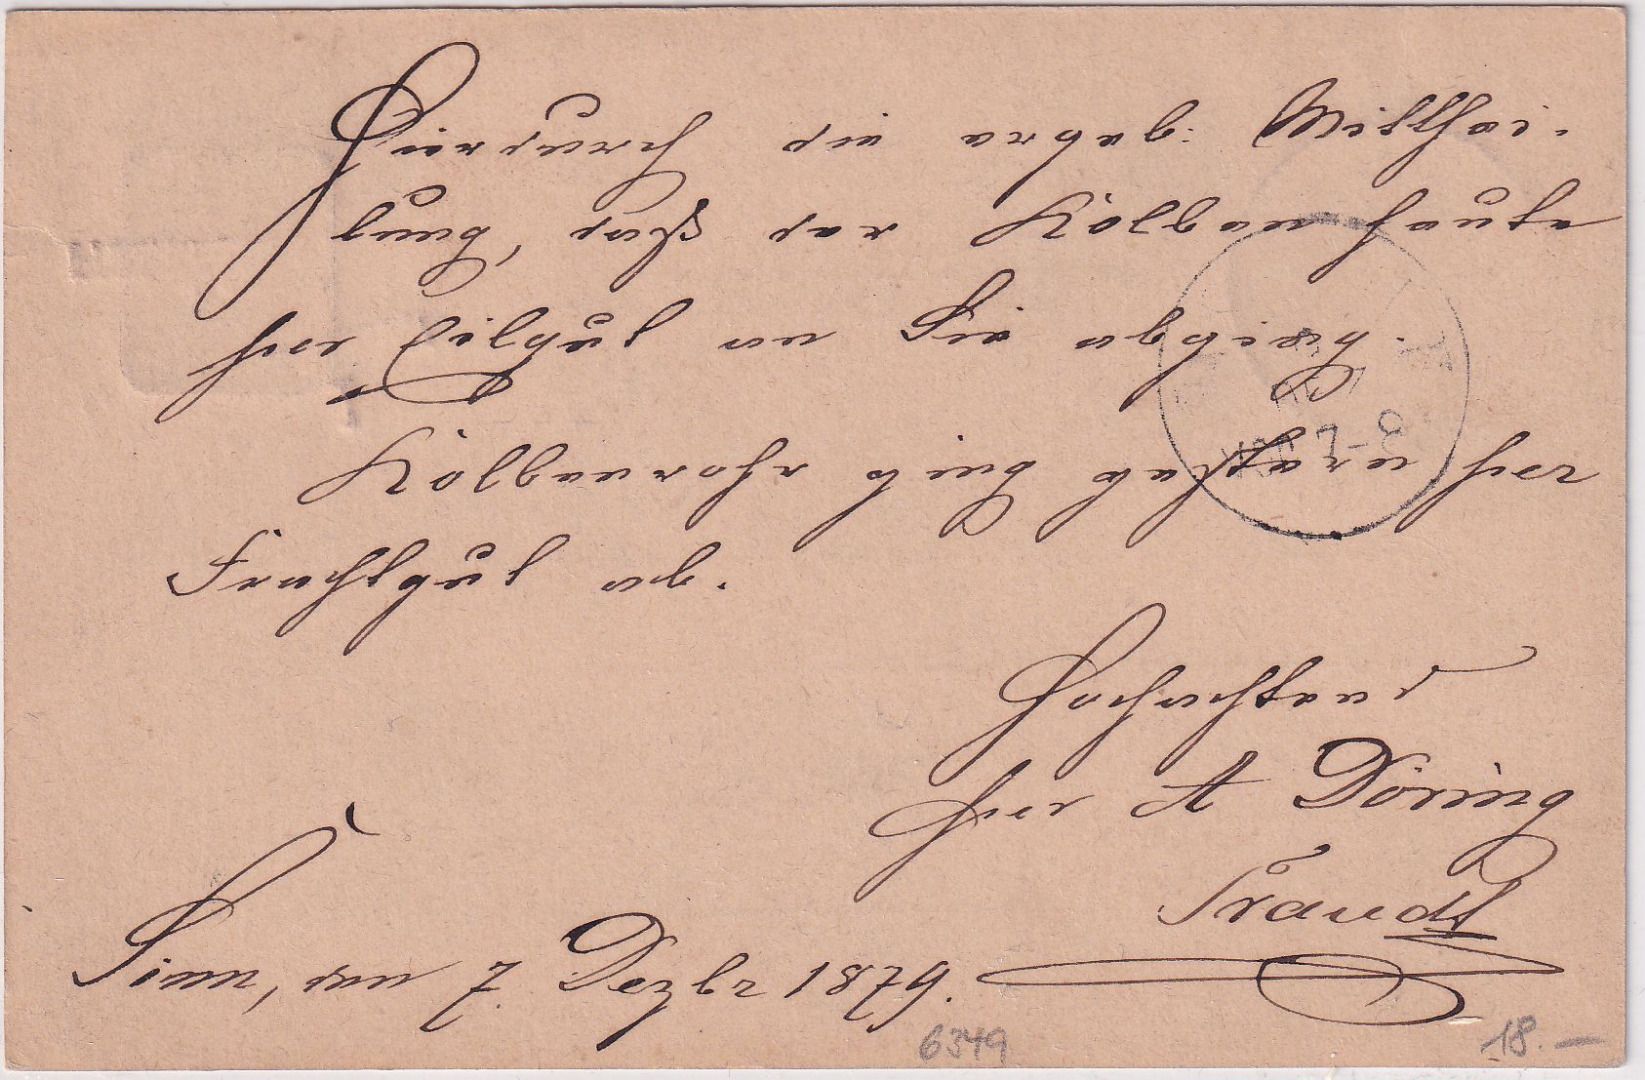 Hierdurch die ergeb. Mitthei-
lung, daß der Kolben heute
per Eilgut an Sie abging.
Kolbenrohr ging gestern per
Frachtgut ab.
Hochachtend
per A Döring
Sinn, den 7. Dezbr 1879.
7-8
6349
18.—